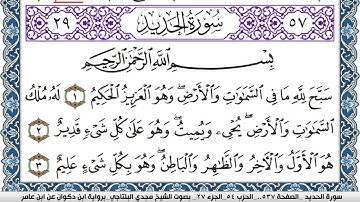 ٢٩ سُورَةُ الْحَدِيدِ ٥٧
بِسْمِ اللَّهِ الرَّحْمَٰنِ الرَّحِيمِ
سَبَّحَ لِلَّهِ مَا فِي السَّمَٰوَٰتِ وَالْأَرْضِ وَهُوَ الْعَزِيزُ الْحَكِيمُ ١ لَهُ مُلْكُ
السَّمَٰوَٰتِ وَالْأَرْضِ يُحْيِ وَيُمِيتُ وَهُوَ عَلَىٰ كُلِّ شَيْءٍ قَدِيرٌ ٢
هُوَ الْأَوَّلُ وَالْآخِرُ وَالظَّاهِرُ وَالْبَاطِنُ وَهُوَ بِكُلِّ شَيْءٍ عَلِيمٌ ٣
سورة الحديد .. الصفحة ٥٣٧.. الحزب ٥٤ .الجزء ٢٧ .. بصوت الشيخ مجدي البلتاجي.. برواية ابن ذكوان عن ابن عامر